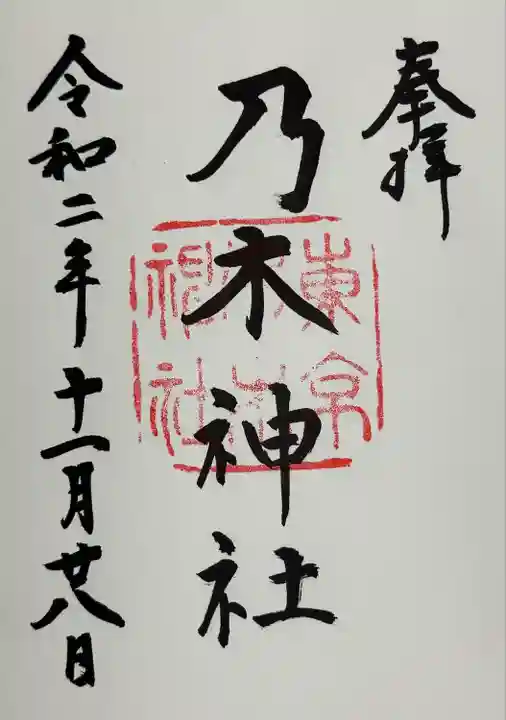 奉拝
乃木神社
東京
乃木
神社
令和二年十一月廿八日